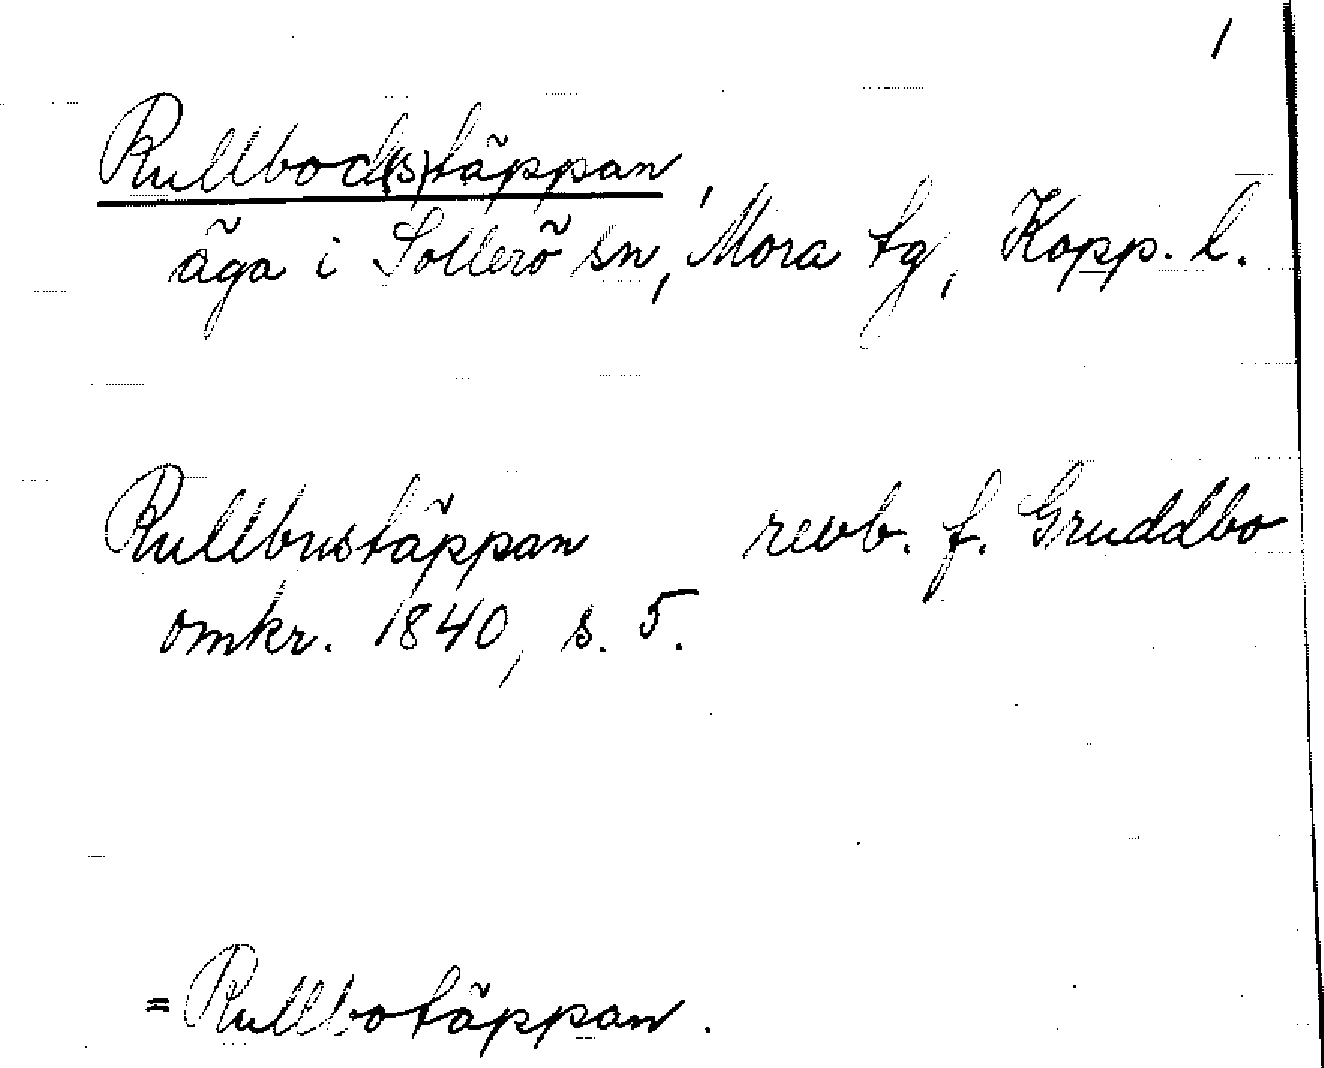 1
Rullbod(s)täppan
äga i Sollerö sn, Mora tg, Kopp. l.
Rullbustäppan revb. f. Gruddbo
omkr. 1840, s. 5.
= Rullbotäppan.